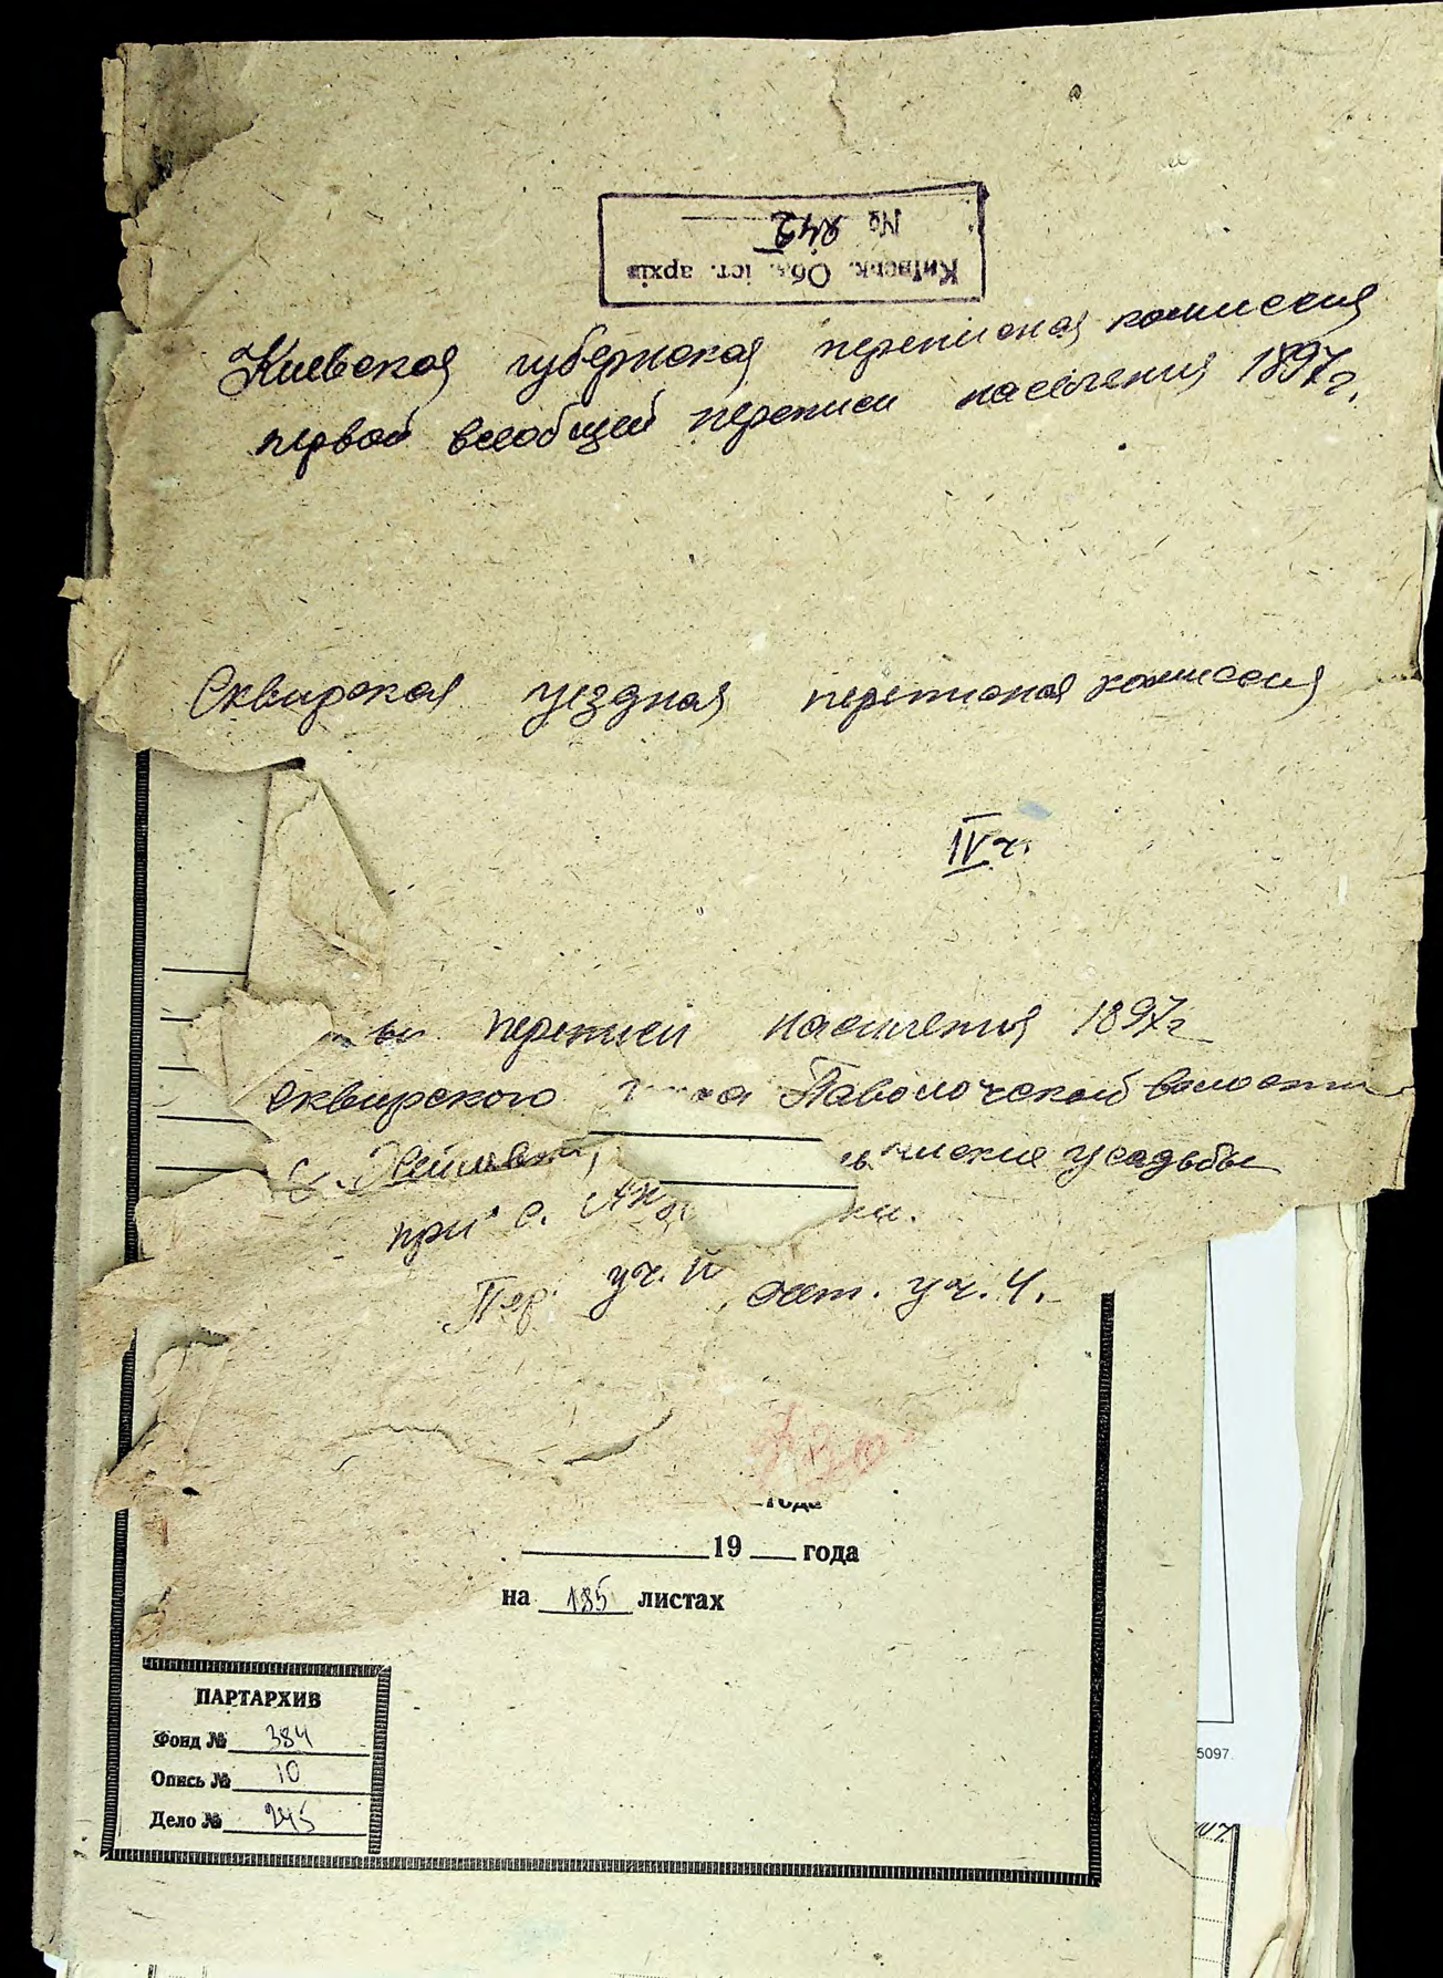 Київськ. Обл. іст. архів
№ 242
Киевская губернская переписная комиссия
первой всеобщей переписи населения 1897 г.
Сквирская уездная переписная комиссия
IV ч.
переписи населения 1897 г
Сквирского Паволочской волости
с. усадьбы
при с.
Пер. уч. сет. уч. 4.
года
19 года
на 185 листах
ПАРТАРХИВ
Фонд № 384
Опись № 10
Дело № 245
5097.